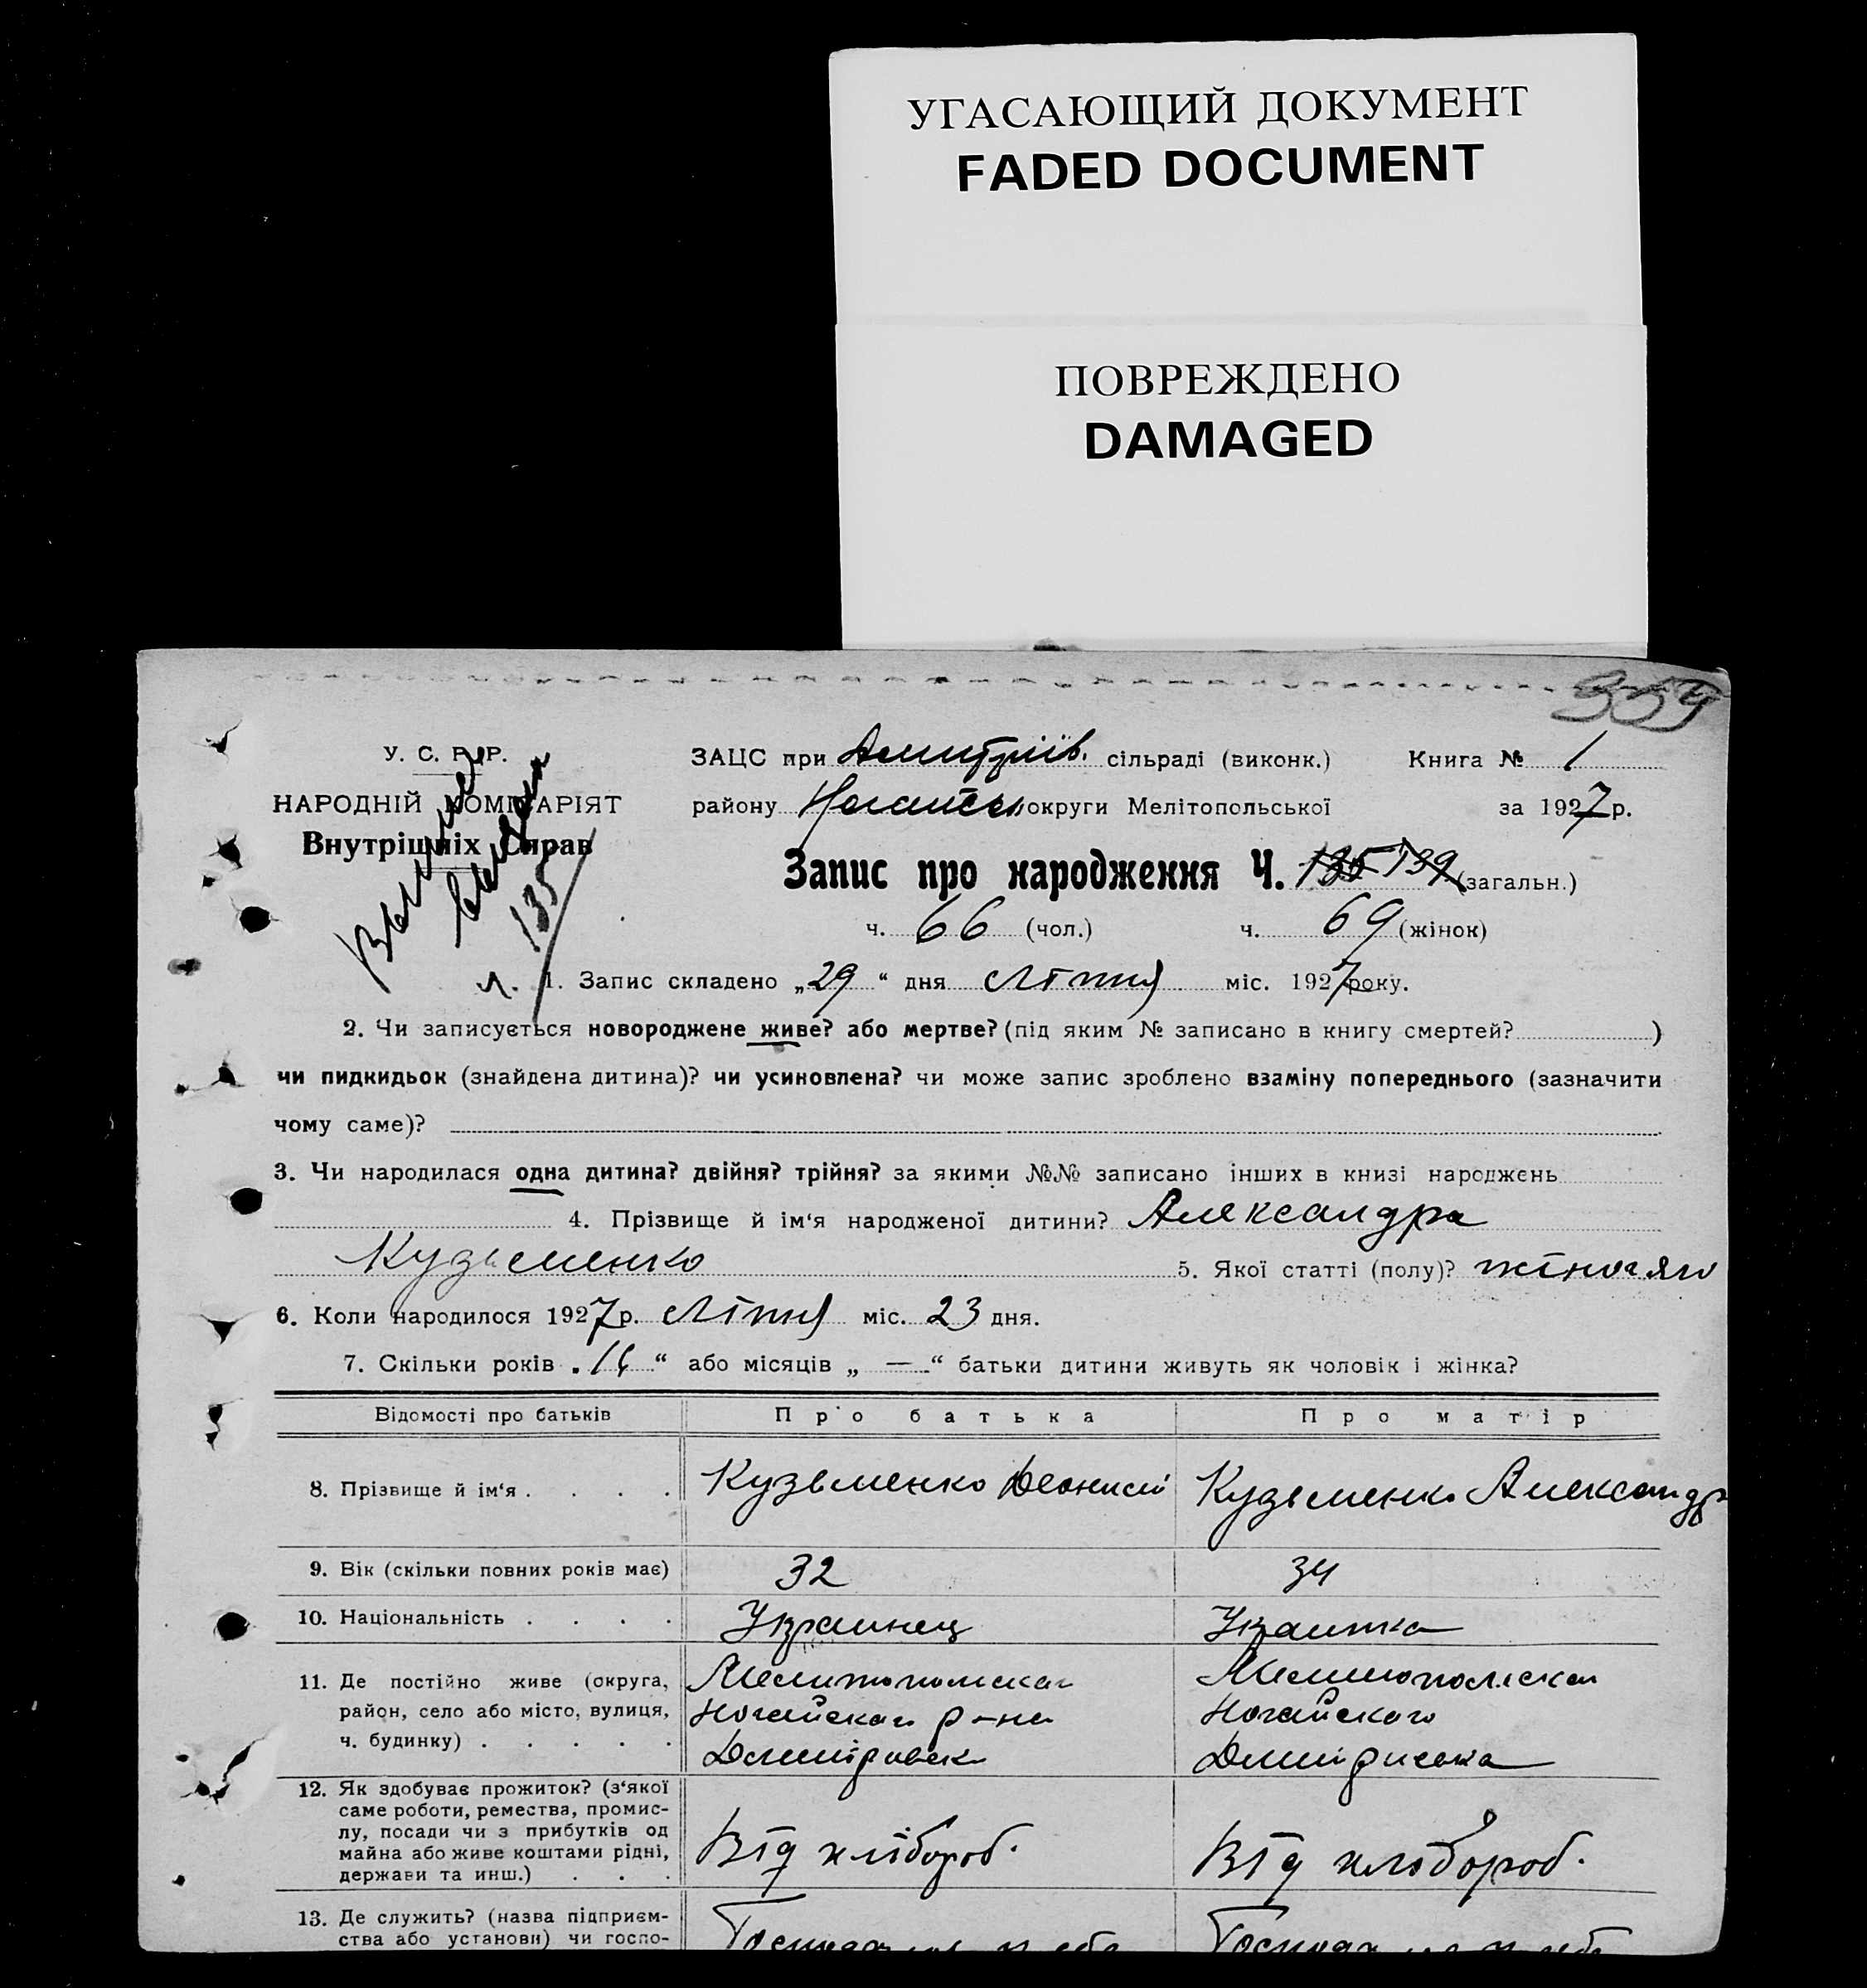 УГАСАЮЩИЙ ДОКУМЕНТ
FADED DOCUMENT
ПОВРЕЖДЕНО
DAMAGED
359
У. С. Р. Р.
НАРОДНІЙ КОМІСАРІЯТ
Внутрішніх Справ
ч. 135
ЗАЦС при Дмитріїв. сільраді (виконк.) Книга № 1
району Ногайськ округи Мелітопольської за 1927 р.
Запис про народження Ч. 135 139 (загальн.)
ч. 66 (чол.) ч. 69 (жінок)
1. Запис складено „29“ дня Літня міс. 1927 року.
2. Чи записується новороджене живе? або мертве? (під яким № записано в книгу смертей? )
чи пидкидьок (знайдена дитина)? чи усиновлена? чи може запис зроблено взаміну попереднього (зазначити
чому саме)?
3. Чи народилася одна дитина? двійня? трійня? за якими №№ записано інших в книзі народжень
4. Прізвище й ім‘я народженої дитини? Александра
Кузьменко 5. Якої статті (полу)? жіночяго
6. Коли народилося 1927 р. Літня міс. 23 дня.
7. Скільки років „ “ або місяців „ — “ батьки дитини живуть як чоловік і жінка?
Відомості про батьків Про батька Про матір
8. Прізвище й ім‘я . . . . Кузьменко Деонисий Кузьменко Александр
9. Вік (скільки повних років має) 32 34
10. Національність . . . . Украинец Украинка
11. Де постійно живе (округа, Мелитопольская Мелитопольская
район, село або місто, вулиця, Ногайскаго р-на Ногайского
ч. будинку) . . . . . Дмитровск Дмитрисвка
12. Як здобуває прожиток? (з‘якої
саме роботи, ремества, промис-
лу, посади чи з прибутків од
майна або живе коштами рідні, Від хлібороб. Від хлібороб.
держави та инш.) . . .
13. Де служить? (назва підприєм-
ства або установи) чи госпо-